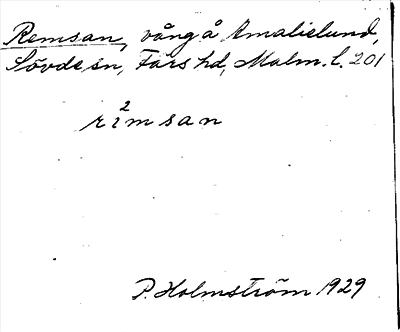 Remsan, vång å Amalielund,
Sövde sn, Färs hd, Malm. l. 201
2
rimsan
P. Holmström 1929